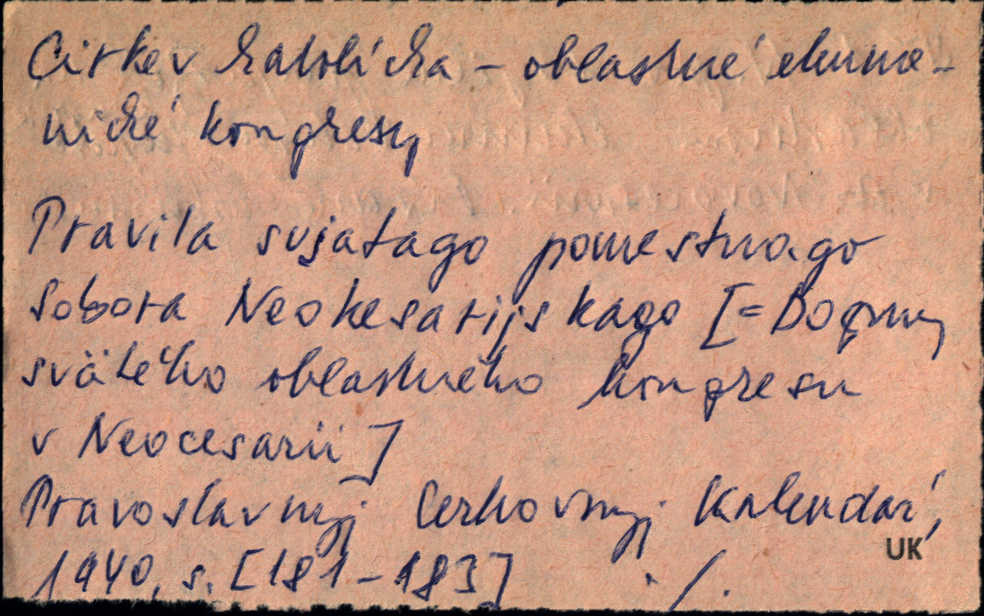 Cirkev katolícka – oblastné ekume-
nické kongresy
Pravila svjatago pomestnago
sobora Neokesarijskago [= Dogmy
svätého oblastného kongresu
v Neocesarii]
Pravoslavnyj Cerkovnyj Kalendař,
1940, s. [181-183] ./.
UK